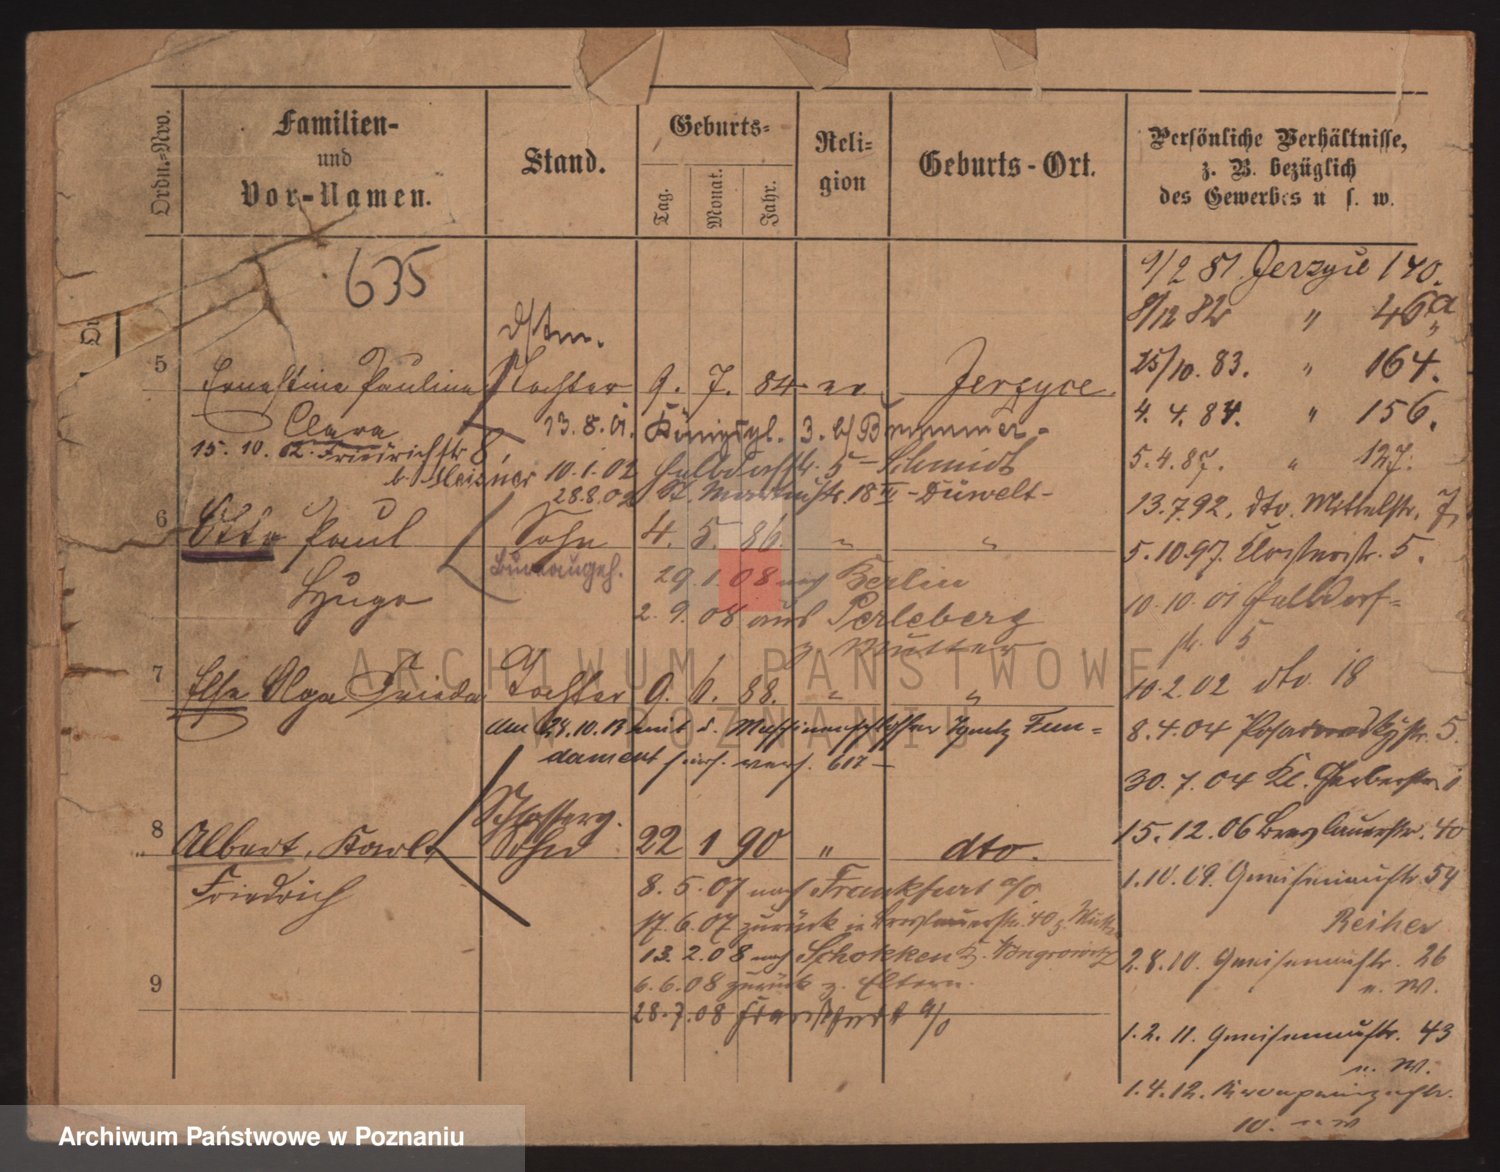 Ordn.-Nro.
Familien-
und
Vor-Namen.
Stand.
Geburts-
Tag.
Monat.
Jahr.
Reli-
gion
Geburts-Ort.
Persönliche Verhältnisse,
z. B. bezüglich
des Gewerbes u. s. w.
635
1/2 81 Jerzyce 140.
8/12 82 " 46a
25/10. 83. " 164.
4. 4. 84. " 156.
5. 4. 87. " 127.
13.7.92. dto. Mittelstr. 7,
5.10.97. 5.
10.10.01 Halldorf-
str. 5
10.2.02 dto. 18
8.4.04 Posadowskystr. 5.
30.7.04 Kl. Gerberstr.
15.12.06 Breslauerstr. 40
1.10.09. Gneisenaustr. 54
Reiher
2.8.10. Gneisenaustr. 26
u. W.
1.2.11. Gneisenaustr. 43
u. W.
1.4.12. Kronprinzenstr.
10.
5
Ernestine Pauline Tochter 9. 7. 84 ev. Jerzyce.
Clara
13.8.01. Königspl. 3. b/ Brummer-
15. 10. 02. Friedrichstr 8,
b. Meissner
10.1.02 Halbdorfstr. 5 - Schmidt
28.8.02 St. Martinstr. 18 III - Düwelt-
6
Otto Paul Sohn 4. 5. 86. " "
Hugo
Bureaugeh.
29.1.08 nach Berlin
2.9.08 aus Perleberg
z. Mutter
7
Else Olga Frieda Tochter 9. 6. 88. " "
Am 24.10.13 mit d. Maschinenschlosser Ignatz Fun-
dament
8
Albert, Karl, Sohn 22 1 90 " dto.
Friedrich
8. 5. 07 nach Frankfurt a/O.
17. 6. 07 zurück in Breslauerstr. 40 z. Mutter
13. 2. 08 nach Schokken Kr. Wongrowitz
6. 6. 08 zurück z. Eltern.
28.7.08 Frankfurt a/O
9
ARCHIWUM PAŃSTWOWE
W POZNANIU
Archiwum Państwowe w Poznaniu